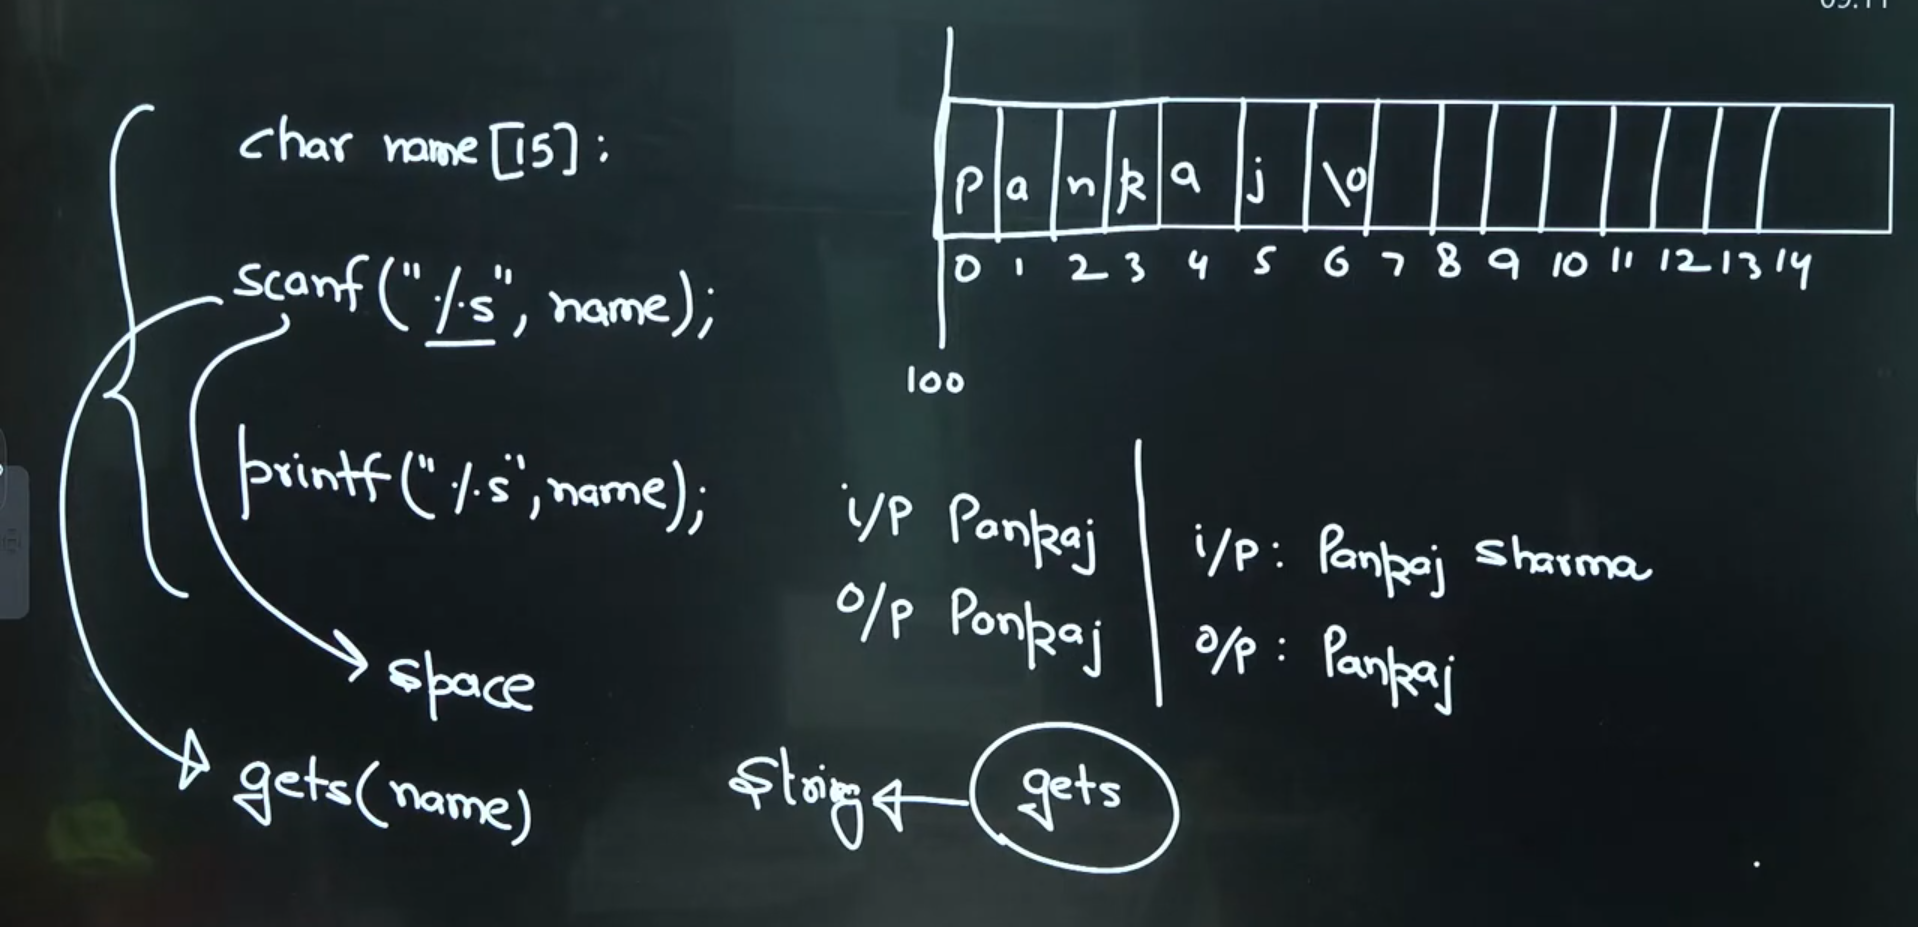 char name[15];
scanf("%s", name);
printf("%s", name);
space
gets(name)
P a n k a j \0
0 1 2 3 4 5 6 7 8 9 10 11 12 13 14
100
i/p Pankaj
o/p Pankaj
i/p: Pankaj Sharma
o/p: Pankaj
String gets